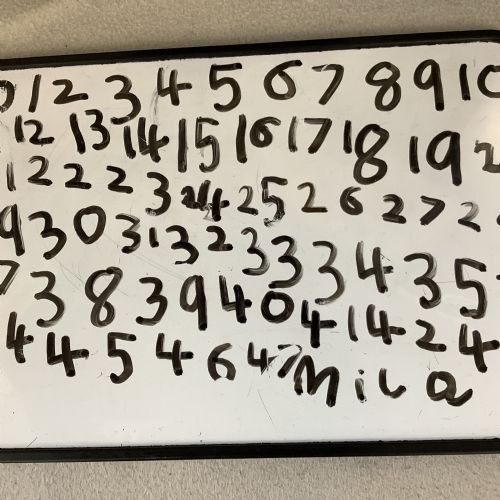 0 1 2 3 4 5 6 7 8 9 10
12 13 14 15 16 17 18 19 2
1 22 2 3 24 25 26 27 2
9 30 31 32 33 34 35
7 38 39 40 41 42 4
4 45 46 47 Mila